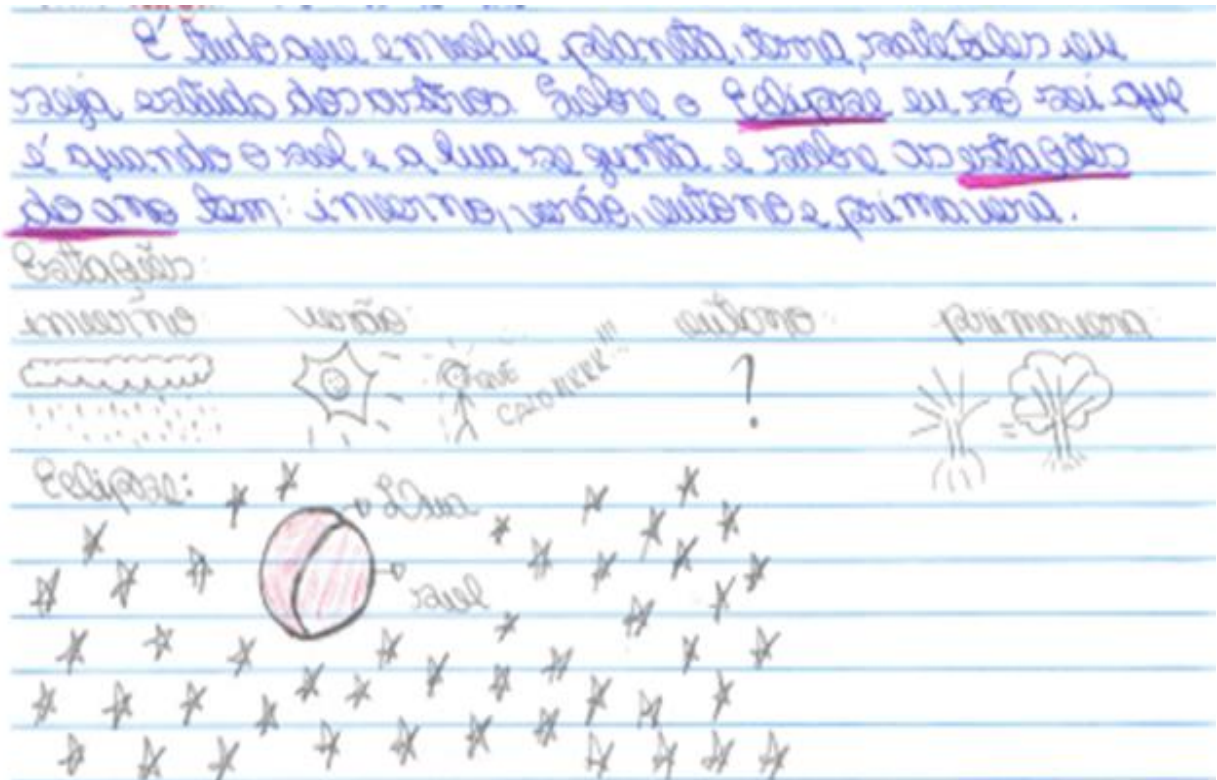 É tudo que envolve planeta, terra, satélites ou
seja estudo dos astros. Sobre o Eclipse eu só sei que
é quando o sol e a lua se gunta e sobre as estações
do ano tem: inverno, verão, outono e primavera.
Estações:
inverno verão outono primavera:
QUE CALORRRR!!! ?
Eclipse:
Lua
sol